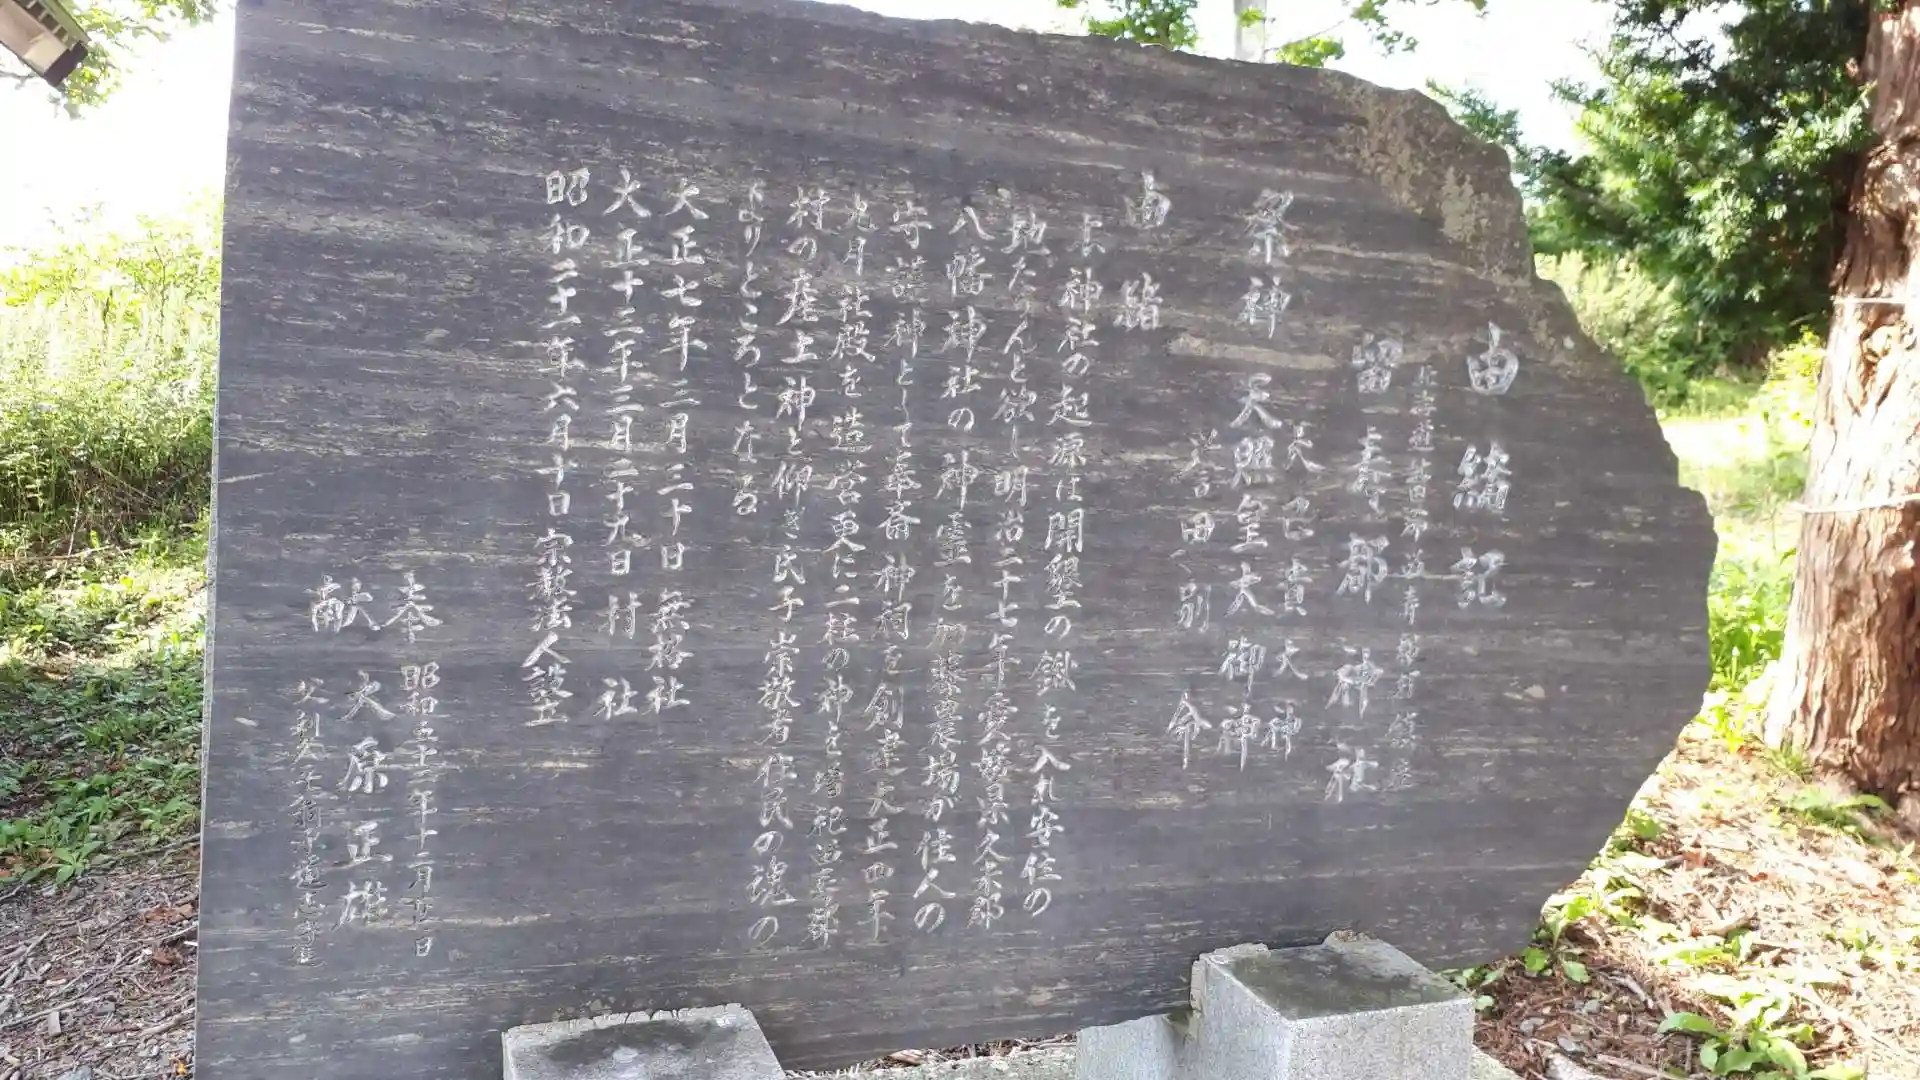 由緒記
北海道
留寿都神社
祭神 天照皇大御神
大己貴大神
誉田別命
由緒
神社の起源は開墾の鍬を入れ安住の
地たらんと欲し明治二十七年愛
八幡神社の神霊を加藤農場が住人の
守護神として奉斎神祠を創建大正四年
九月社殿を造営更に二柱の神を増祀
村の産土神と仰ぎ氏子崇敬者住民の魂の
よりどころとなる
大正七年三月三十日 無格社
大正十二年三月二十九日 村社
昭和二十一年六月十日 宗教法人設立
奉献
昭和五十二年十二月
大原正雄
父